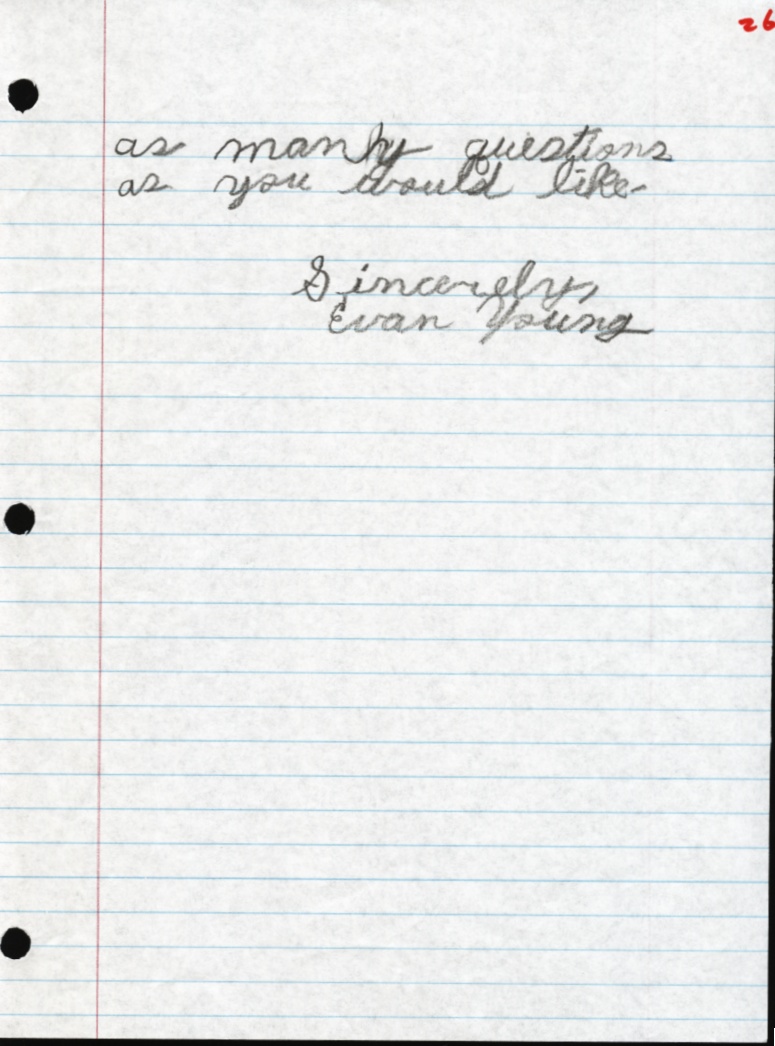 26
as manhy questions
as you would like.
Sincerely,
Evan Young